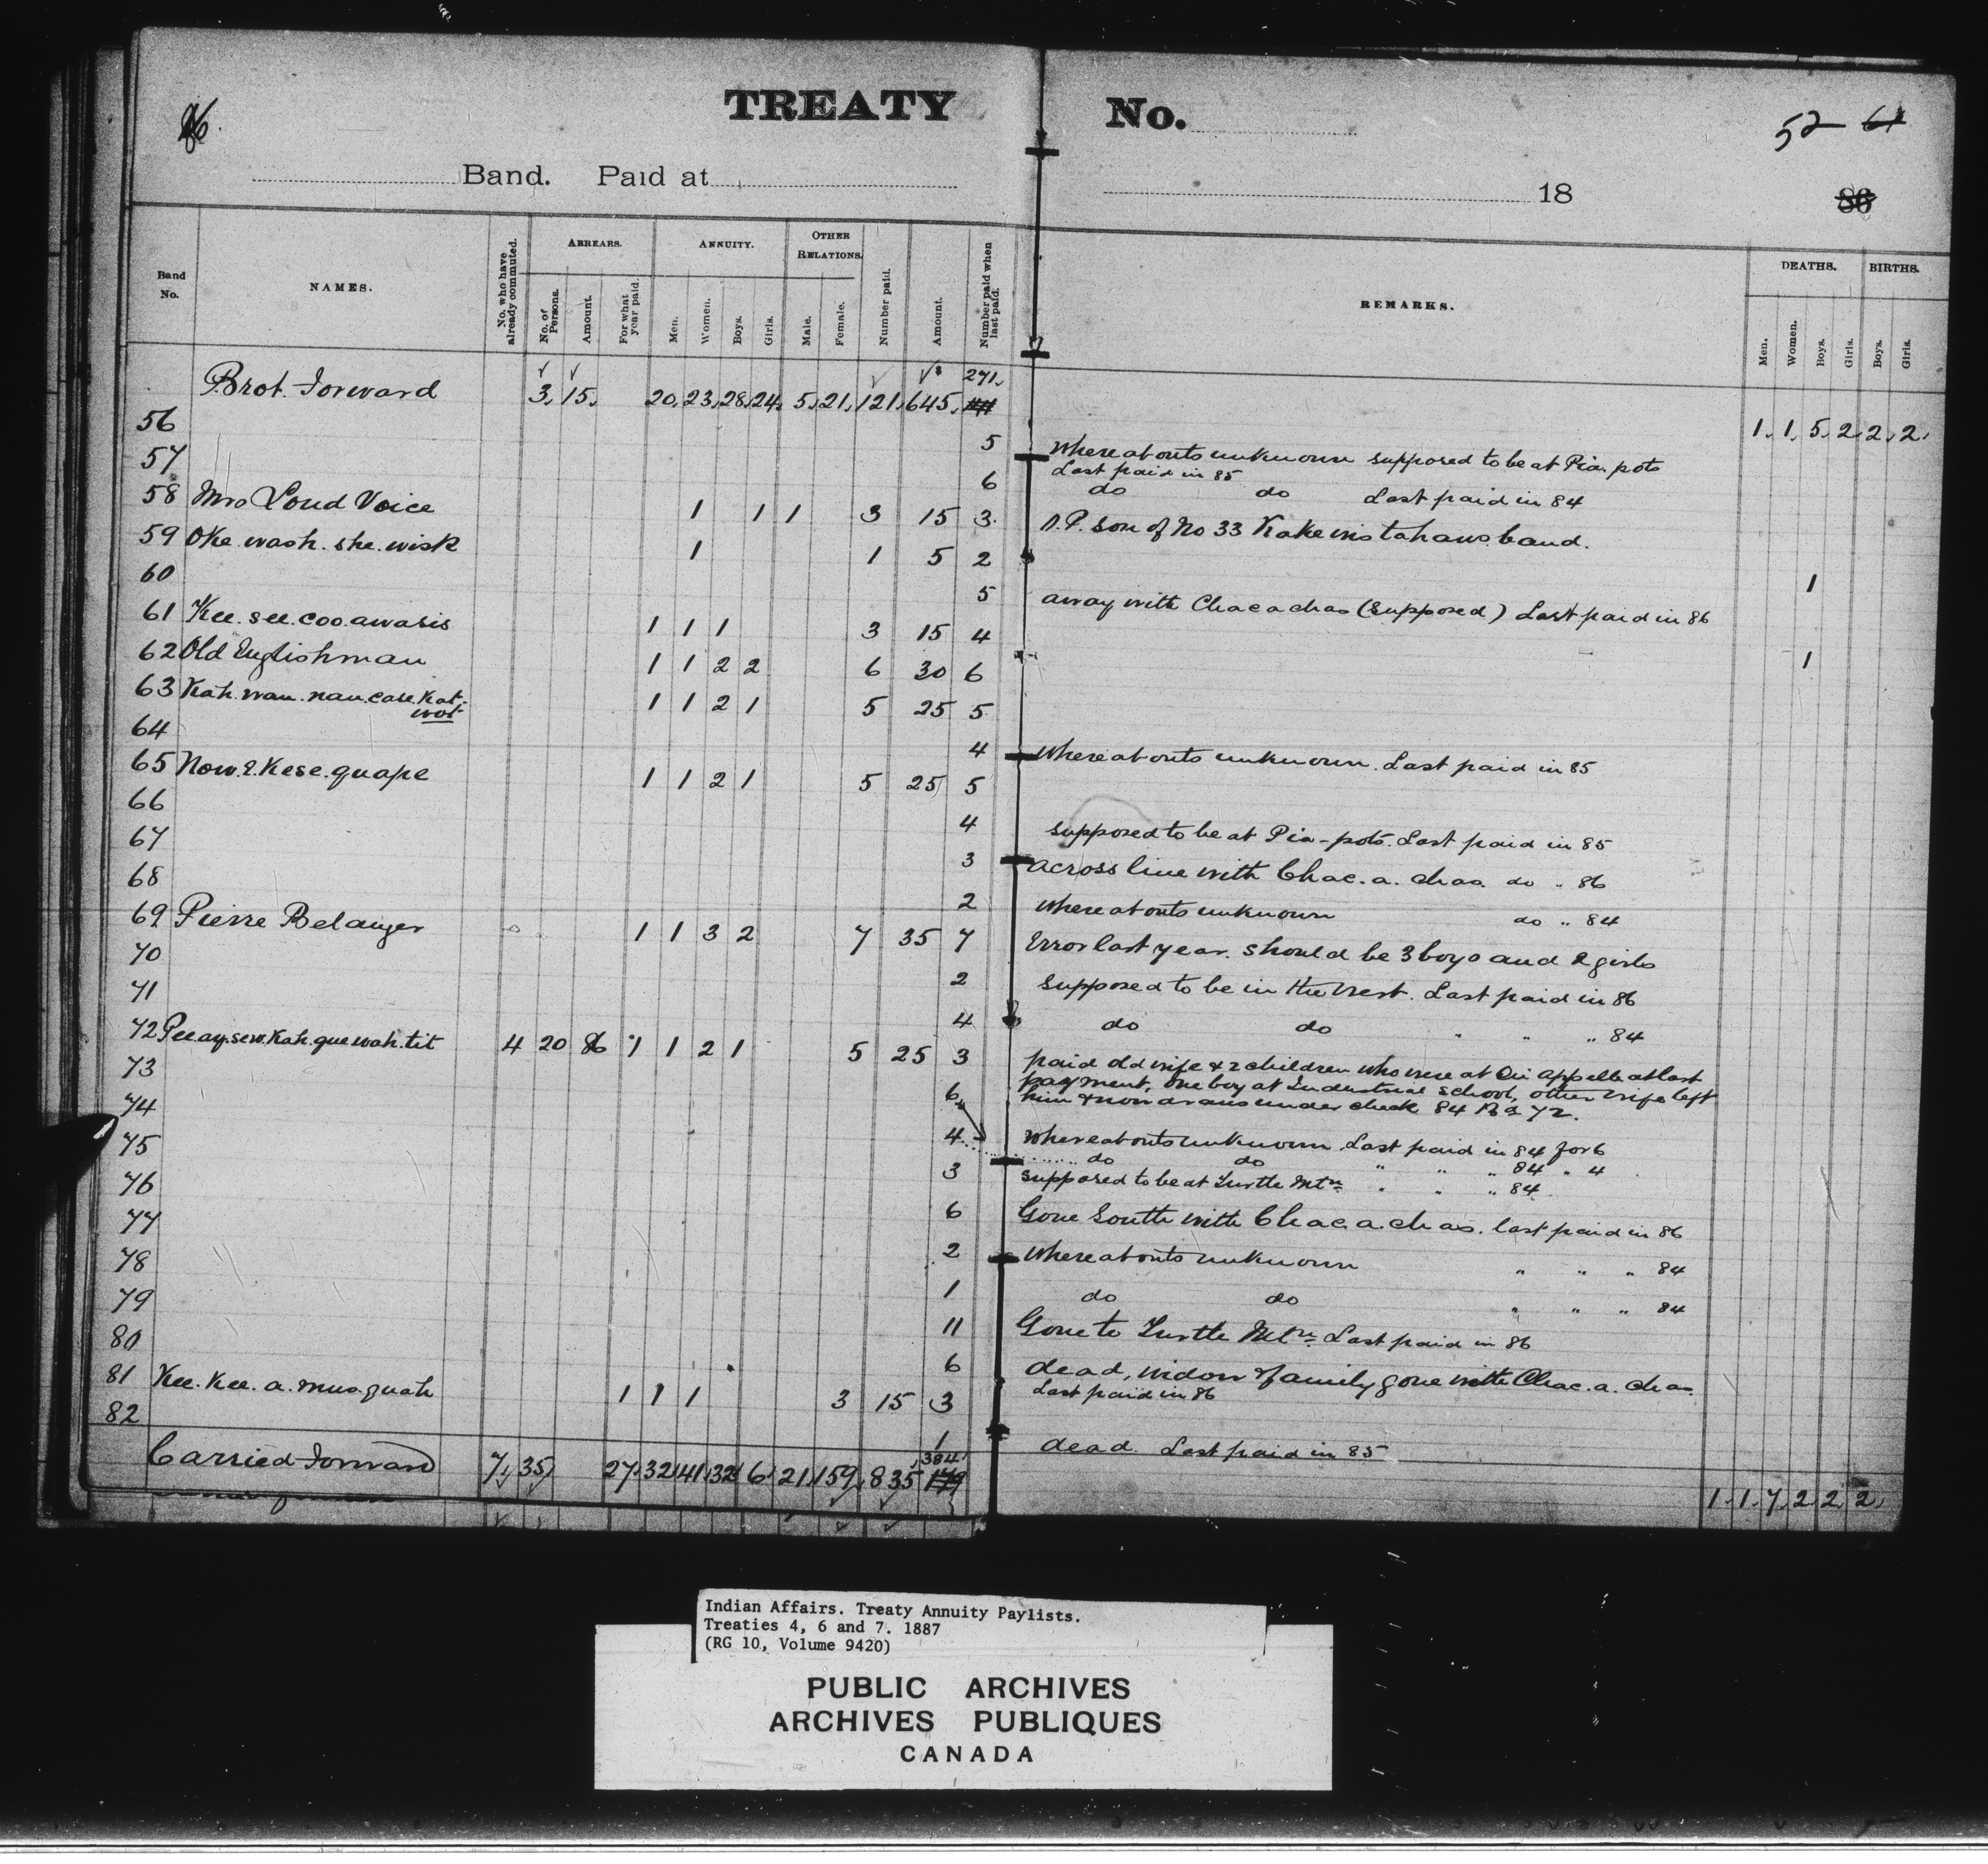 TREATY No.
52 61
Band. Paid at 18 86
Band No.
NAMES.
No. who have already commuted.
ARREARS.
No. of Persons.
Amount.
For what year paid.
ANNUITY.
Men.
Women.
Boys.
Girls.
OTHER RELATIONS.
Male.
Female.
Number paid.
Amount.
Number paid when last paid.
REMARKS.
DEATHS.
Men.
Women.
Boys.
Girls.
BIRTHS.
Boys.
Girls.
271
Brot. Forward 3, 15, 20, 23, 28, 24, 5, 21, 121, 645, 1, 1, 5, 2, 2, 2,
56 5 Whereabouts unknown supposed to be at Pia-pots
Last paid in 85
57 6 do do Last paid in 84
58 Mrs Loud Voice 1 1 1 3 15 3 O.P. son of No 33 Kakewistahaws band.
59 Oke.wash.she.wisk 1 1 5 2 1
60 5 away with Chacachas (Supposed) Last paid in 86
61 Kee.see.coo.awasis 1 1 1 3 15 4 1
62 Old Englishman 1 1 2 2 6 30 6
63 Kah.wau.nau.case.Kat.
wot 1 1 2 1 5 25 5
64 4 Whereabouts unknown. Last paid in 85
65 Now.E.Kese.quape 1 1 2 1 5 25 5
66 4 supposed to be at Pia-pots. Last paid in 85
67 3 across line with Chac.a.chas. do " 86
68 2 Whereabouts unknown do " 84
69 Pierre Belanger 1 1 3 2 7 35 7 Error last year. should be 3 boys and 2 girls
70 2 supposed to be in the West. Last paid in 86
71 4 do do " " " 84
72 Pee.ay.sew.Kah.que.wah.tit 4 20 86 1 1 2 1 5 25 3 paid old wife & 2 children who were at Qu'Appelle at last
payment, one boy at Industrial School, other wife left
him & now draws under check 84 72.
73 6
74 4 Whereabouts unknown Last paid in 84 for 6
do do " " " 84 " 4
75 3 supposed to be at Turtle Mtn " " " 84
76 6 Gone South with Chac.a.chas. last paid in 86
77 2 Whereabouts unknown " " " 84
78 1 do do " " " 84
79 11 Gone to Turtle Mtn Last paid in 86
80 6 dead, widow & family gone with Chac.a.chas.
Last paid in 86
81 Kee.Kee.a.mus.quah 1 1 1 3 15 3
82 1 dead. Last paid in 85
384
Carried Forward 7, 35, 27, 32, 41, 32, 6, 21, 159, 835, 179 1, 1, 7, 2, 2, 2,
Indian Affairs. Treaty Annuity Paylists.
Treaties 4, 6 and 7. 1887
(RG 10, Volume 9420)
PUBLIC ARCHIVES
ARCHIVES PUBLIQUES
CANADA